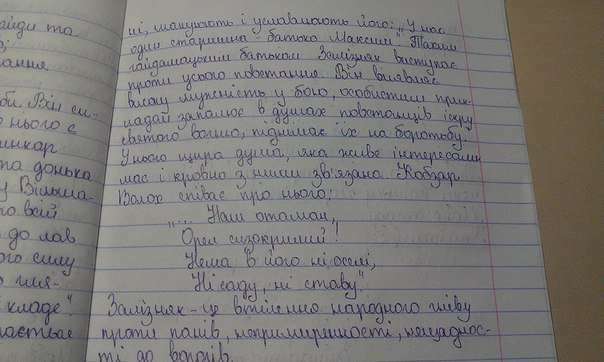 айди та
ання
би. Він си-
о нього є
шинкар
та донька
у Вільша-
го всій
до лав
го силу
кладе".
ається
ні, шанують і уславлюють його: „У нас
один старшина - батько Максим". Таким
гайдамацьким батьком Залізняк виступає
проти усього повстання. Він виявляє
велику мужність у бою, особистим прик-
ладом запалює в душах повстанців іскру
святого вогню, піднімає їх на боротьбу.
У нього щира душа, яка живе інтересами
мас і кровно з ними зв'язана. Кобзар
Волох співає про нього:
„... Наш отаман,
Орел сизокрилий!
Нема в його ні оселі,
Ні саду, ні ставу".
Залізняк - це втілення народного гніву
проти панів, непримиренності, нещаднос-
ті до ворогів.